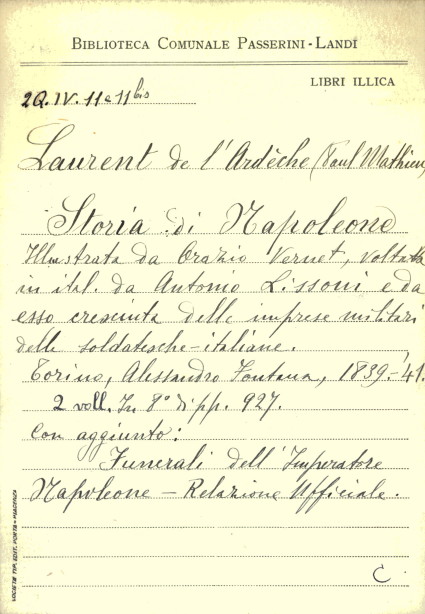 BIBLIOTECA COMUNALE PASSERINI-LANDI
LIBRI ILLICA
2Q.IV.11e11bis
Laurent de l'Ardèche (Paul Mathieu)
Storia di Napoleone
Illustrata da Orazio Vernet, voltata
in ital. da Antonio Lissoni e da
esso cresciuta delle imprese militari
delle soldatesche italiane.
Torino, Alessandro Fontana, 1839-'41.
2 voll. In 8° di pp. 927.
Con aggiunto:
Funerali dell'Imperatore
Napoleone - Relazione Ufficiale.
C